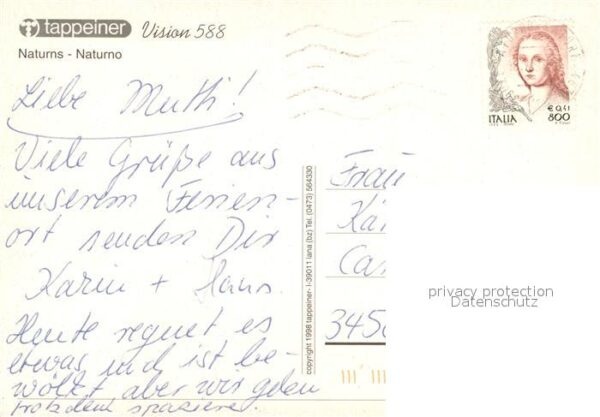 tappeiner Vision 588
Naturns - Naturno
Liebe Mutti!
Viele Grüße aus
unserem Ferien-
ort senden Dir
Karin + Hans.
Heute regnet es
etwas und ist be-
wölkt, aber wir gehen
trotzdem spazieren.
copyright 1998 tappeiner - I-39011 lana (bz) Tel. (0473) 564330
€ 0,41
ITALIA 800
Frau
Kar
Car
3450
privacy protection
Datenschutz